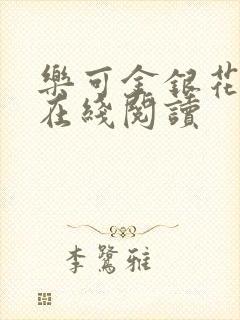 樂可金銀花
在綫閱讀
李鷺雅